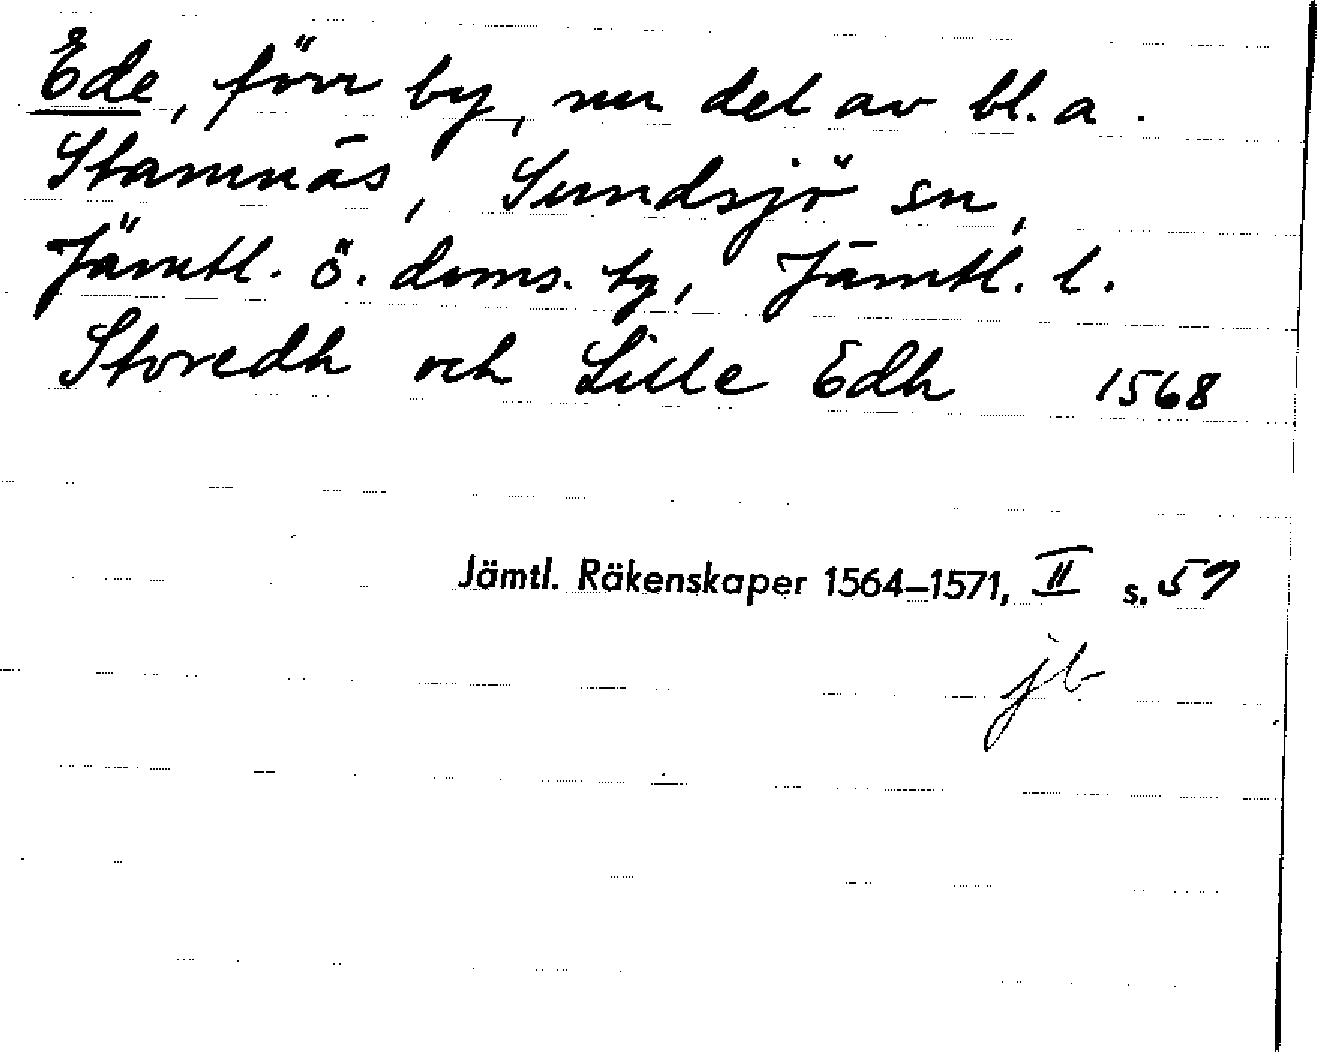 Ede, förr by, nu del av bl. a.
Stamnäs, Sundsjö sn,
Jämtl. ö. doms. tg, Jämtl. l.
Storedh och Lille Edh 1568
Jämtl. Räkenskaper 1564–1571, II s. 59
jb